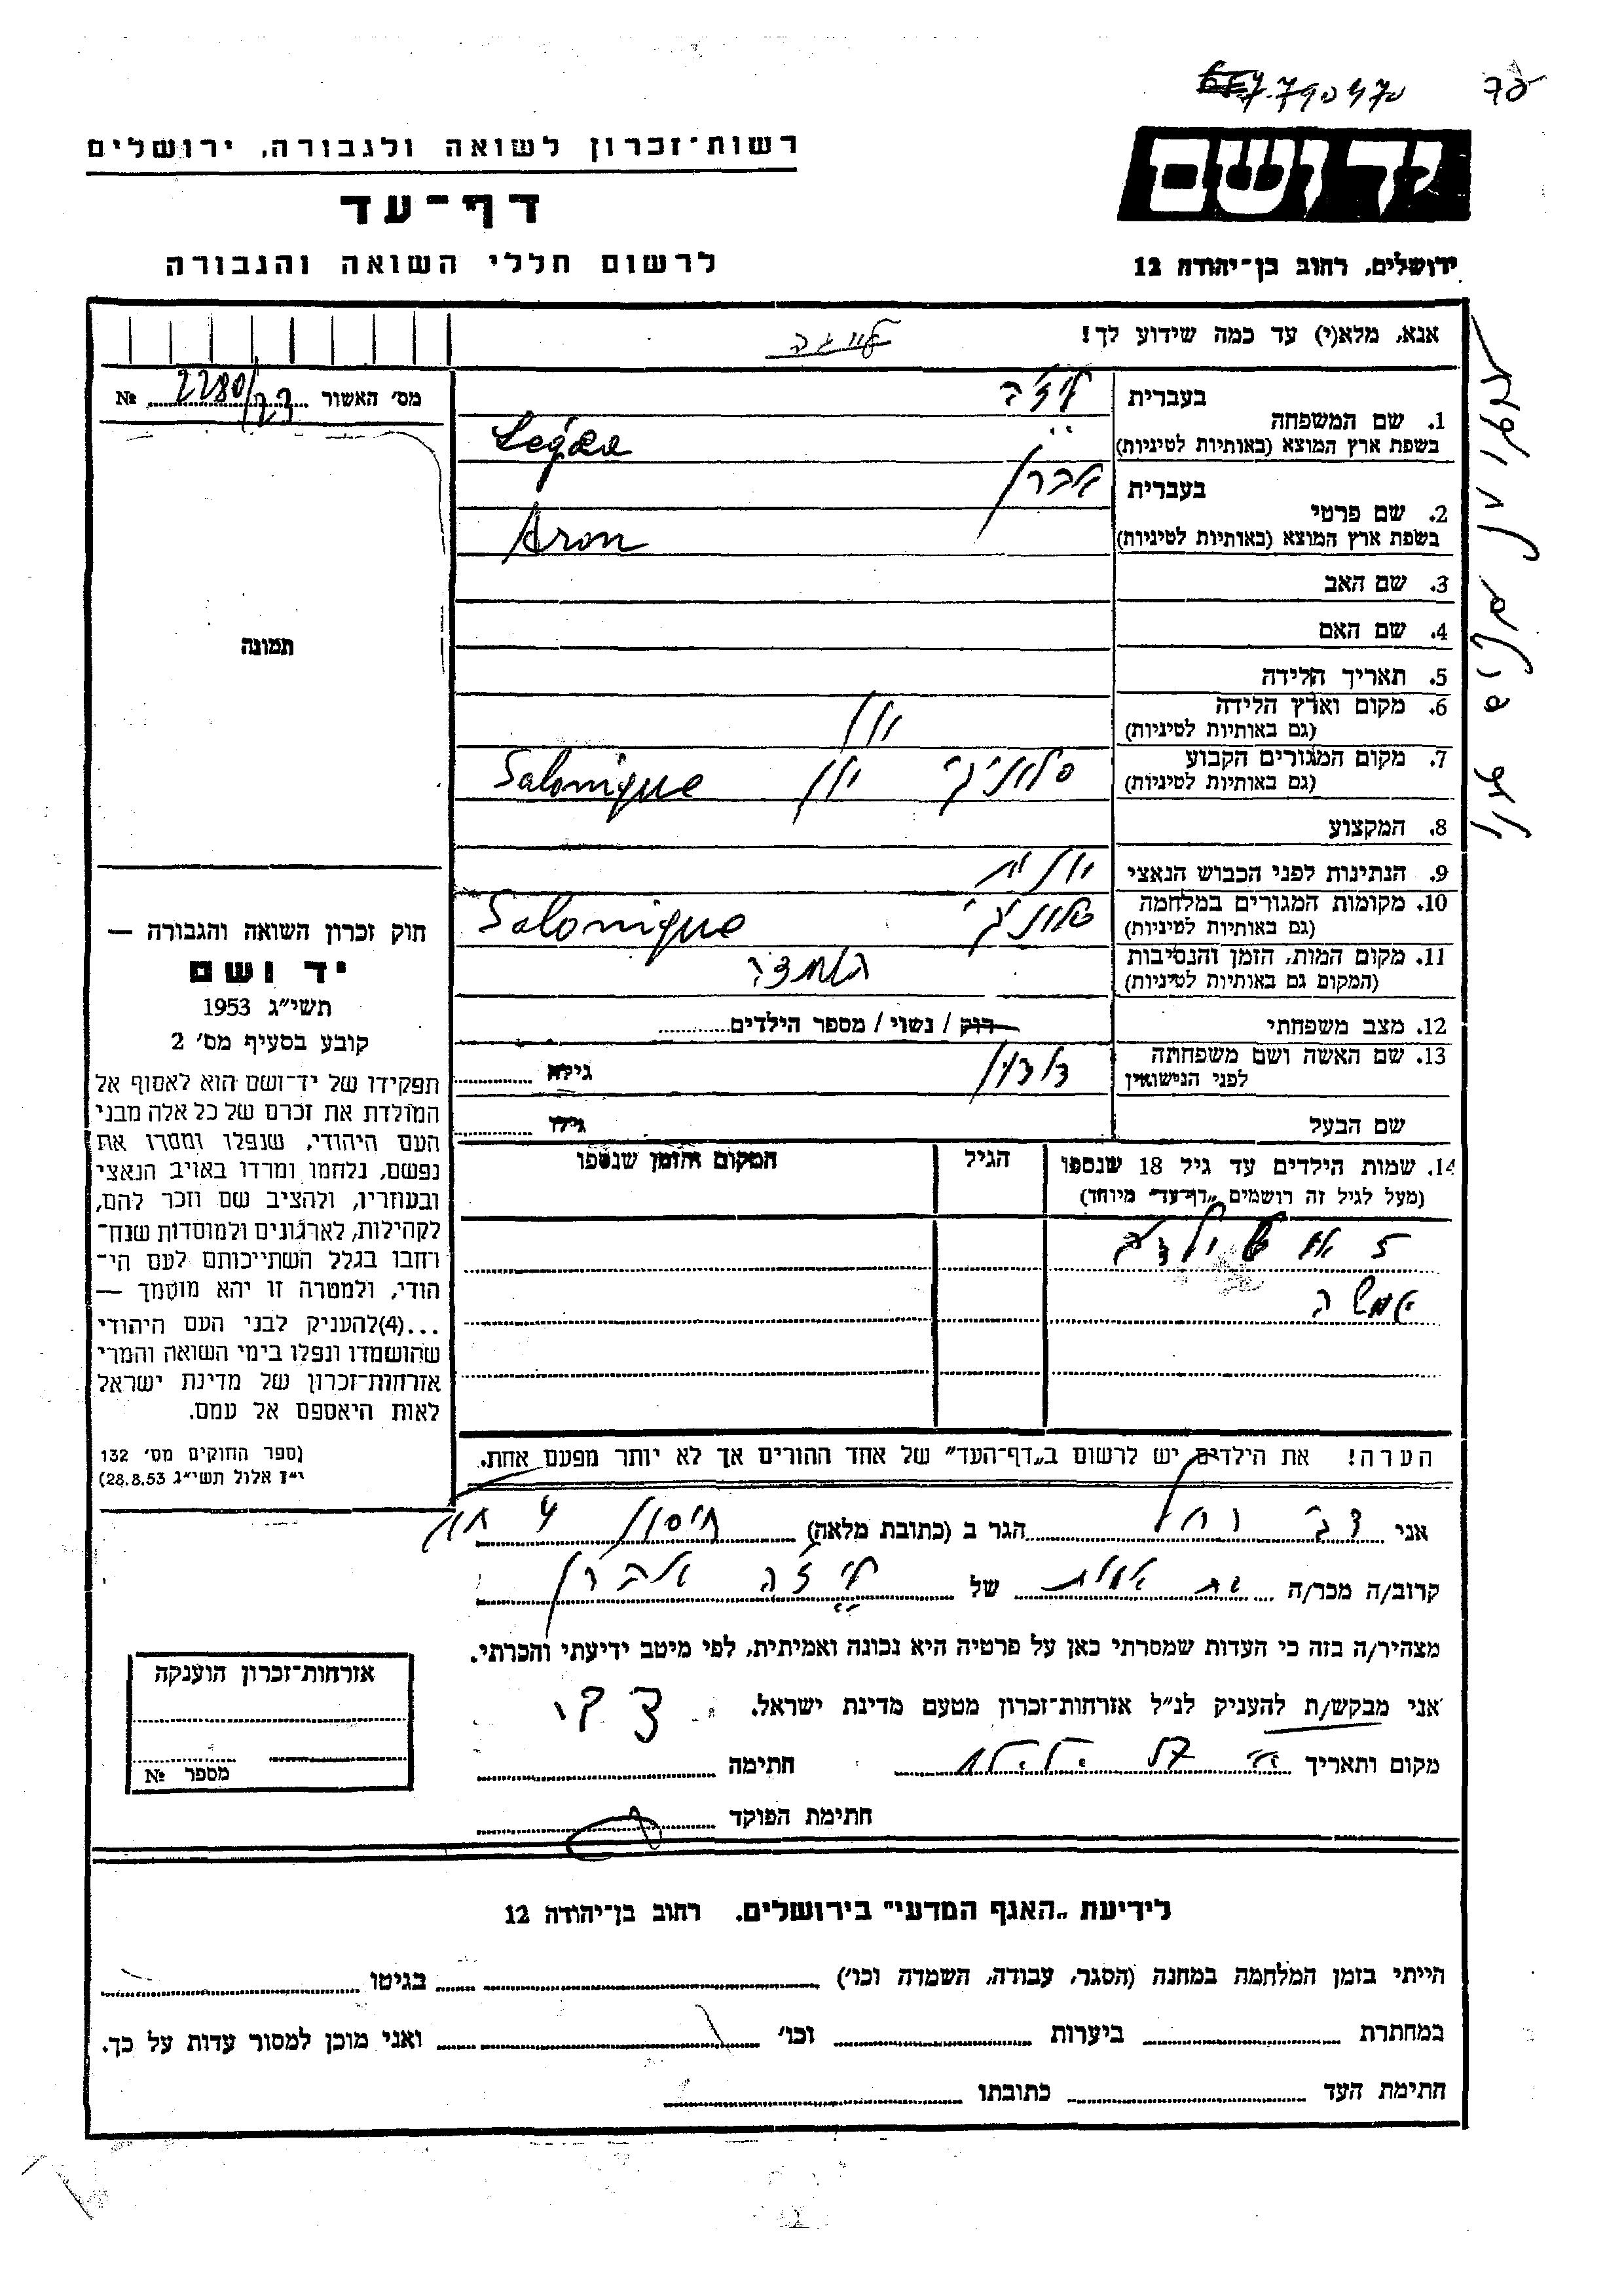 רשות־זכרון לשואה ולגבורה, ירושלים
דף־עד
לרשום חללי השואה והגבורה
יד ושם
ירושלים, רחוב בן־יהודה 12
אנא, מלא(י) עד כמה שידוע לך!
מס׳ האשור № 2280/
תמונה
חוק זכרון השואה והגבורה —
יד ושם
תשי״ג 1953
קובע בסעיף מס׳ 2
תפקידו של יד־ושם הוא לאסוף אל
המולדת את זכרם של כל אלה מבני
העם היהודי, שנפלו ומסרו את
נפשם, נלחמו ומרדו באויב הנאצי
ובעוזריו, ולהציב שם וזכר להם,
לקהילות, לארגונים ולמוסדות שנח־
רחבו בגלל השתייכותם לעם הי־
הודי, ולמטרה זו יהא מוסמך —
...(4)להעניק לבני העם היהודי
שהושמדו ונפלו בימי השואה והמרי
אזרחות־זכרון של מדינת ישראל
לאות היאספם אל עמם.
(ספר החוקים מס׳ 132
י״ז אלול תשי״ג 28.8.53)
1. שם המשפחה בעברית
בשפת ארץ המוצא (באותיות לטיניות)
2. שם פרטי בעברית
בשפת ארץ המוצא (באותיות לטיניות) Aron
3. שם האב
4. שם האם
5. תאריך הלידה
6. מקום וארץ הלידה יון
(גם באותיות לטיניות)
7. מקום המגורים הקבוע סלוניקי יון Salonique
(גם באותיות לטיניות)
8. המקצוע
9. הנתינות לפני הכבוש הנאצי יונית
10. מקומות המגורים במלחמה סלוניקי Salonique
(גם באותיות לטיניות)
11. מקום המות, הזמן והנסיבות בהשמדה
(המקום גם באותיות לטיניות)
12. מצב משפחתי רוק / נשוי / מספר הילדים
13. שם האשה ושם משפחתה גילה
לפני הנישואין
שם הבעל גילו
14. שמות הילדים עד גיל 18 שנספו הגיל המקום והזמן שנספו
(מעל לגיל זה רושמים „דף־עד״ מיוחד)
הערה! את הילדים יש לרשום ב„דף־העד״ של אחד ההורים אך לא יותר מפעם אחת.
אני רחל הגר ב (כתובת מלאה)
קרוב/ה מכר/ה של
מצהיר/ה בזה כי העדות שמסרתי כאן על פרטיה היא נכונה ואמיתית, לפי מיטב ידיעתי והכרתי.
אני מבקש/ת להעניק לנ״ל אזרחות־זכרון מטעם מדינת ישראל.
מקום ותאריך חתימה
חתימת הפוקד
אזרחות־זכרון הוענקה
מספר №
לידיעת „האגף המדעי״ בירושלים. רחוב בן־יהודה 12
הייתי בזמן המלחמה במחנה (הסגר, עבודה, השמדה וכו׳) בגיטו
במחתרת ביערות וכו׳ ואני מוכן למסור עדות על כך.
חתימת העד כתובתו